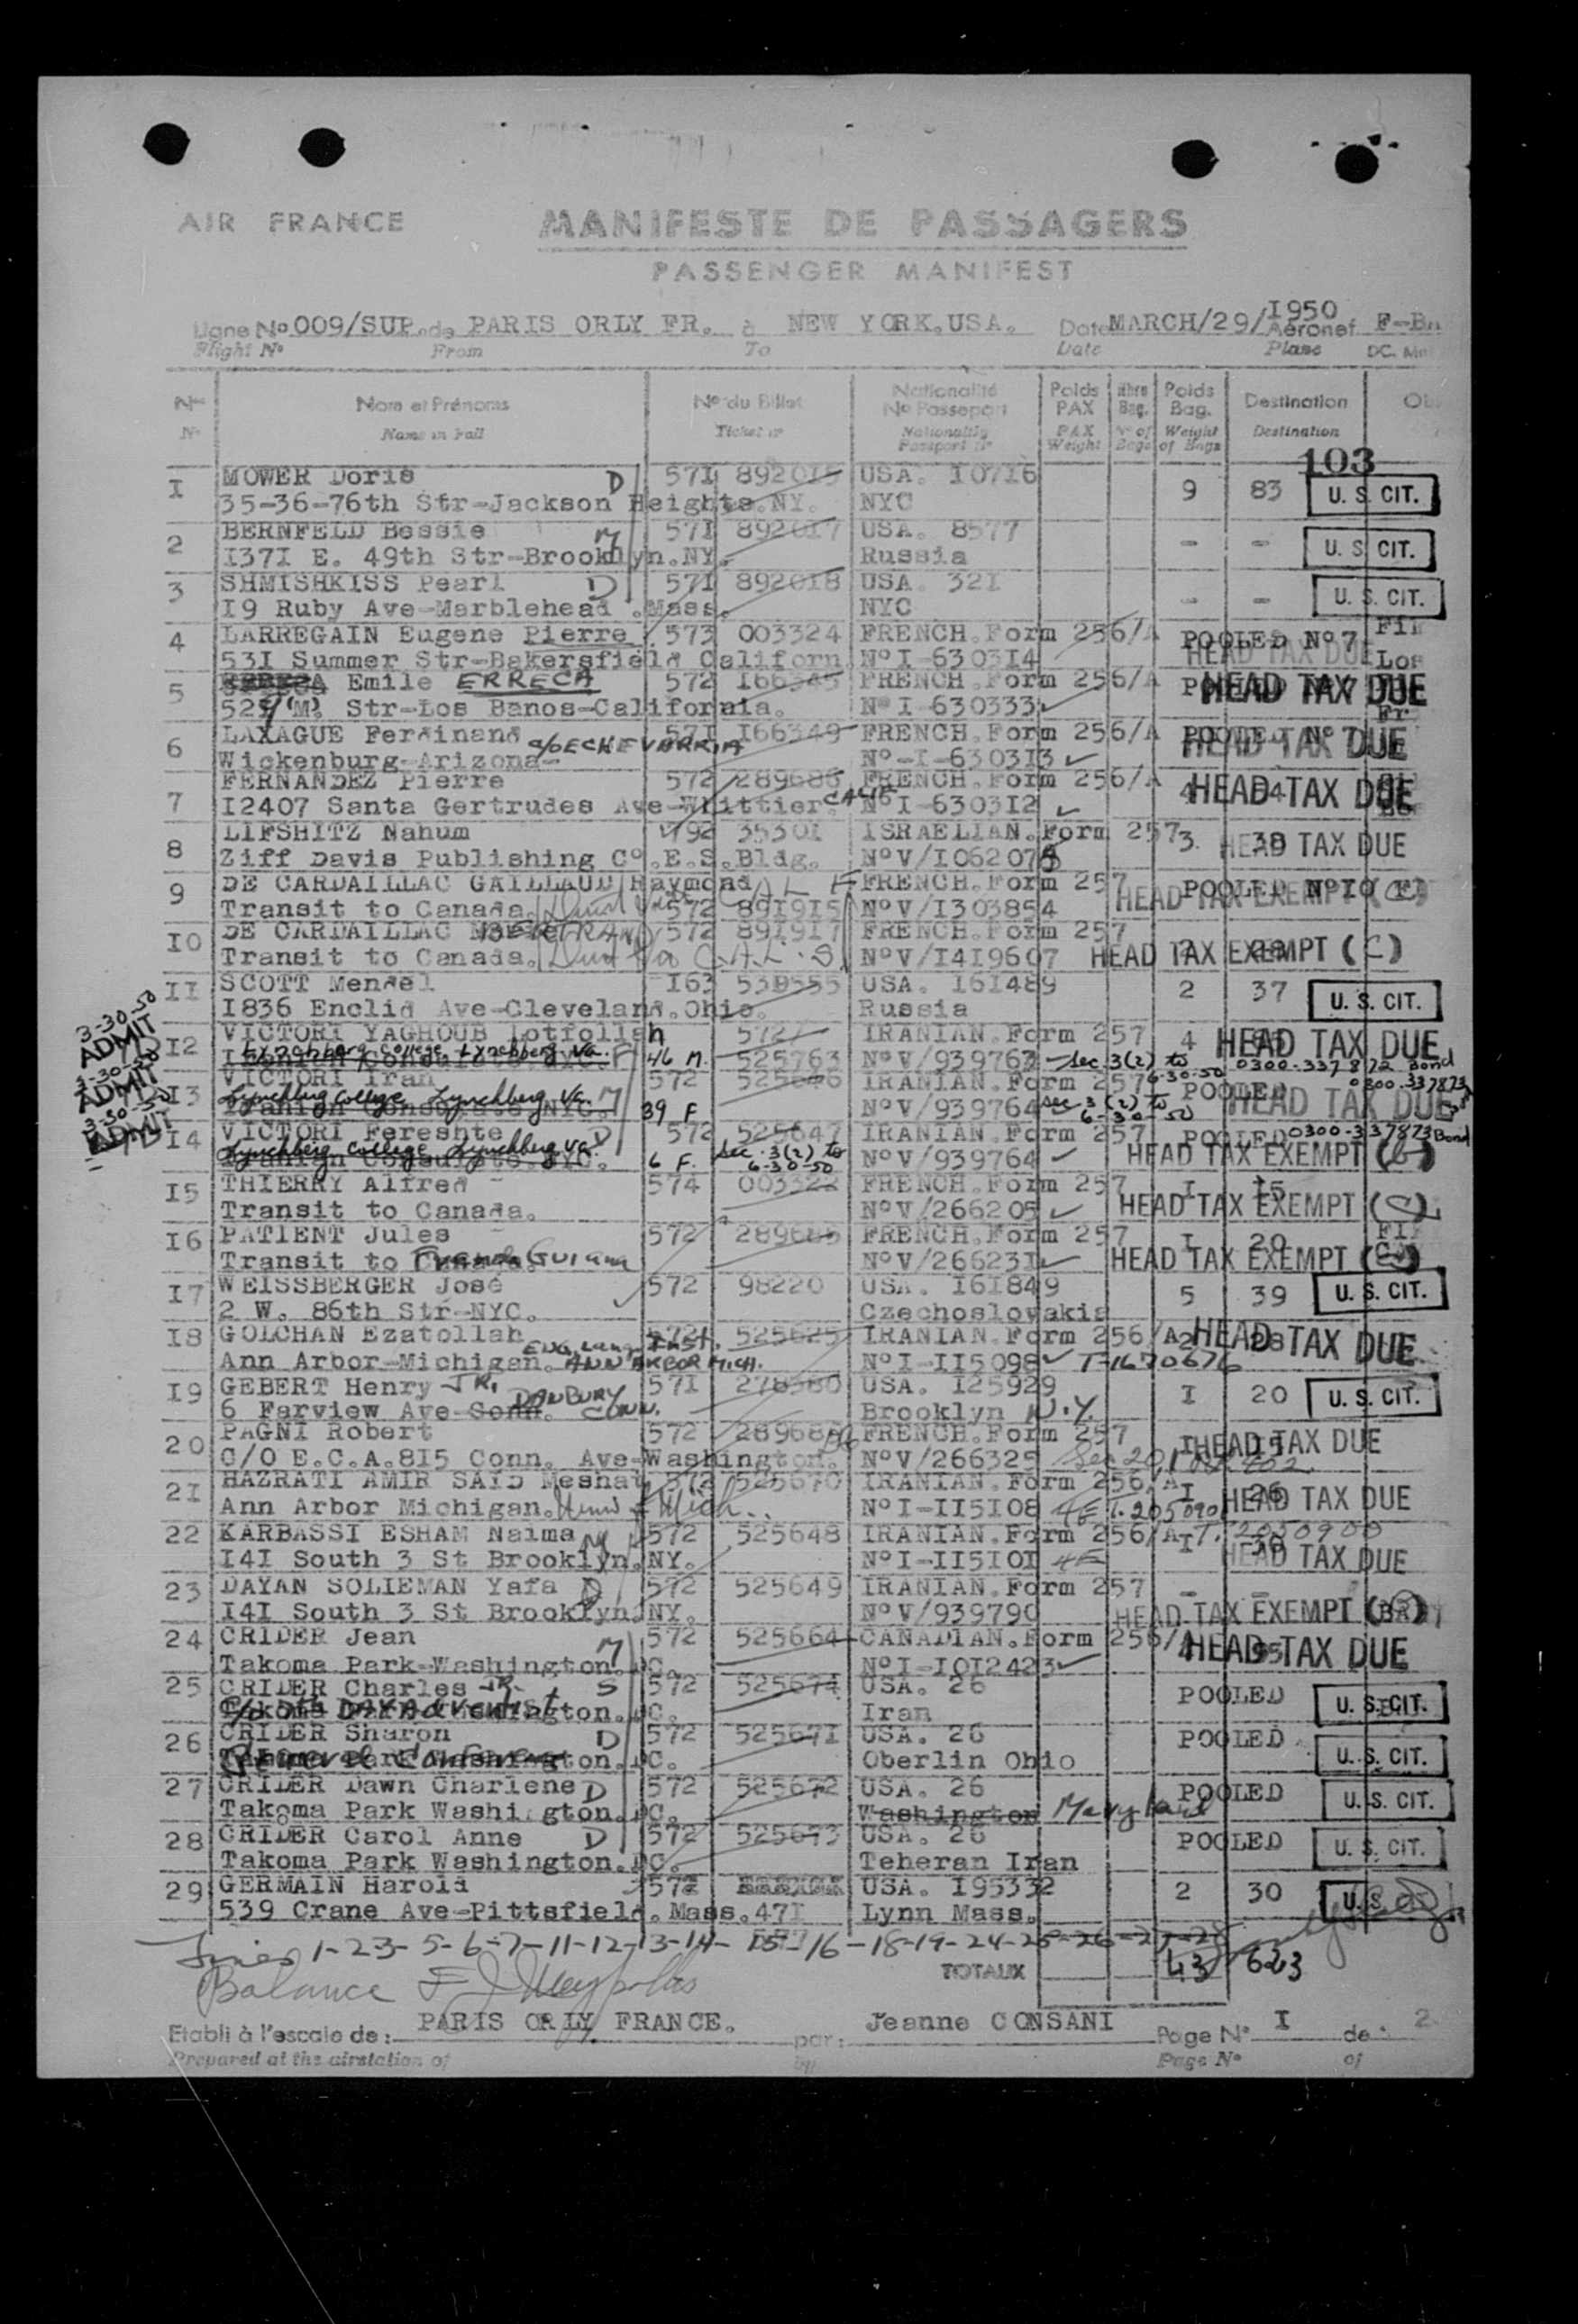 AIR FRANCE
MANIFESTE DE PASSAGERS
PASSENGER MANIFEST
Ligne No 009/SUP. de PARIS ORLY FR. à NEW YORK.USA. Date MARCH/29/1950 Aéronef
Flight No From To Date Plane
No Nom et Prénoms No du Billet Nationalité No Passeport Poids PAX Nbre Bag. Poids Bag. Destination
No Name in Full Ticket nr Nationality Passport No PAX Weight No of Bags Weight of Bags Destination
103
I MOWER Doris D 57I USA. I07I6 9 83 U. S. CIT.
35-36-76th Str-Jackson Heights.NY. NYC
2 BERNFELD Bessie M 57I 8920I7 USA. 8577 - - U. S. CIT.
I37I E. 49th Str-Brooklyn.NY. Russia
3 SHMISHKISS Pearl D 57I 8920I8 USA. 32I - - U. S. CIT.
I9 Ruby Ave-Marblehead .Mass. NYC
4 LARREGAIN Eugene Pierre 573 003324 FRENCH.Form 256/A POOLED No7
53I Summer Str-Bakersfield Californ NoI-6303I4 HEAD TAX DUE
5 Emile ERRECA 572 FRENCH.Form 256/A HEAD TAX DUE
Str-Los Banos-California. No I-630333
6 LAXAGUE Ferdinand 57I I66349 FRENCH.Form 256/A POOLED No 7
Wickenburg-Arizona- c/o ECHEVERRIA No-I-6303I3 HEAD TAX DUE
7 FERNANDEZ Pierre 572 FRENCH.Form 256/A HEAD TAX DUE
I2407 Santa Gertrudes Ave-Whittier. CALIF No I-6303I2
8 LIFSHITZ Nahum 792 3530I ISRAELIAN.Form 257 3 38 HEAD TAX DUE
Ziff Davis Publishing Co.E.S.Bldg.
9 DE CARDAILLAC GAILLAUD Raymond FRENCH.Form 257 POOLED NoI0
Transit to Canada. 572 89I9I5 NoV/I303854 HEAD TAX EXEMPT (C)
I0 DE CARDAILLAC BERTRAND 572 89I9I7 FRENCH.Form 257
Transit to Canada. NoV/I4I9607 HEAD TAX EXEMPT (C)
II SCOTT Mendel I63 USA. I6I489 2 37 U. S. CIT.
I836 Enclid Ave-Cleveland.Ohio. Russia
3-30-50 ADMIT
I2 VICTORI YAGHOUB Lotfollah 572 IRANIAN.Form 257 4 HEAD TAX DUE
Lynchburg College, Lynchburg Va. F 46 M. 525763 NoV/939763 Sec.3(2) to 6-30-50 0300-337872 Bond
3-30-50 ADMIT
I3 VICTORI Iran M 572 IRANIAN.Form 257 POOLED 0300-337873
Lynchburg College Lynchburg Va. 39 F NoV/939764 Sec 3(2) to 6-30-50 HEAD TAX DUE
3-30-50 ADMIT
I4 VICTORI Fereshte D 572 525647 IRANIAN.Form 257 POOLED 0300-337873 Bond
Lynchberg College Lynchberg Va. 6 F. Sec.3(2) to 6-30-50 NoV/939764 HEAD TAX EXEMPT
I5 THIERRY Alfred 574 FRENCH.Form 257 I I5
Transit to Canada. NoV/266205 HEAD TAX EXEMPT (C)
I6 PATIENT Jules 572 289685 FRENCH.Form 257 I 20
Transit to French Guiana NoV/26623I HEAD TAX EXEMPT
I7 WEISSBERGER José 572 98220 USA. I6I849 5 39 U. S. CIT.
2 W. 86th Str-NYC. Czechoslovakia
I8 GOLCHAN Ezatollah 572 525625 IRANIAN.Form 256/A 2 28 HEAD TAX DUE
Ann Arbor-Michigan. ENG. Lang. INST. ANN ARBOR MICH. NoI-II5098 T-1670676
I9 GEBERT Henry JR. 57I 278380 USA. I25929 I 20 U. S. CIT.
6 Farview Ave DANBURY CONN. Brooklyn N.Y.
20 PAGNI Robert 572 FRENCH.Form 257 I HEAD TAX DUE
C/O E.C.A.8I5 Conn. Ave-Washington. DC NoV/266325
2I HAZRATI AMIR SAID Meshat 572 525670 IRANIAN.Form 256/A I 26
Ann Arbor Michigan. NoI-II5I08 HEAD TAX DUE
22 KARBASSI ESHAM Naima M 572 525648 IRANIAN.Form 256/A T. 2050900 I 30
I4I South 3 St Brooklyn.NY. NoI-II5I0I HEAD TAX DUE
23 DAYAN SOLIEMAN Yafa D 572 525649 IRANIAN.Form 257 - -
I4I South 3 St Brooklyn.NY. NoV/939790 HEAD TAX EXEMPT
24 CRIDER Jean M 572 525664 CANADIAN.Form 256/A HEAD TAX DUE
Takoma Park-Washington.DC. NoI-I0I2423
25 CRIDER Charles JR. S 572 525674 USA. 26 POOLED U. S. CIT.
c/o 7th DAY Adventist Iran
26 CRIDER Sharon D 572 52567I USA. 26 POOLED U. S. CIT.
General Conference Oberlin Ohio
27 CRIDER Dawn Charlene D 572 525672 USA. 26 POOLED U. S. CIT.
Takoma Park Washington.DC. Washington Maryland
28 CRIDER Carol Anne D 572 525673 USA. 26 POOLED U. S. CIT.
Takoma Park Washington.DC. Teheran Iran
29 GERMAIN Harold 572 USA. I95332 2 30 U.S.
539 Crane Ave-Pittsfield.Mass.47I Lynn Mass.
1-23-5-6-7-11-12-13-14-15-16-18-19-24-25-26-27-28
TOTAUX 43 623
Balance
Etabli à l'escale de: PARIS ORLY FRANCE. par: Jeanne CONSANI Page No I de: 2
Prepared at the airstation of by Page No of